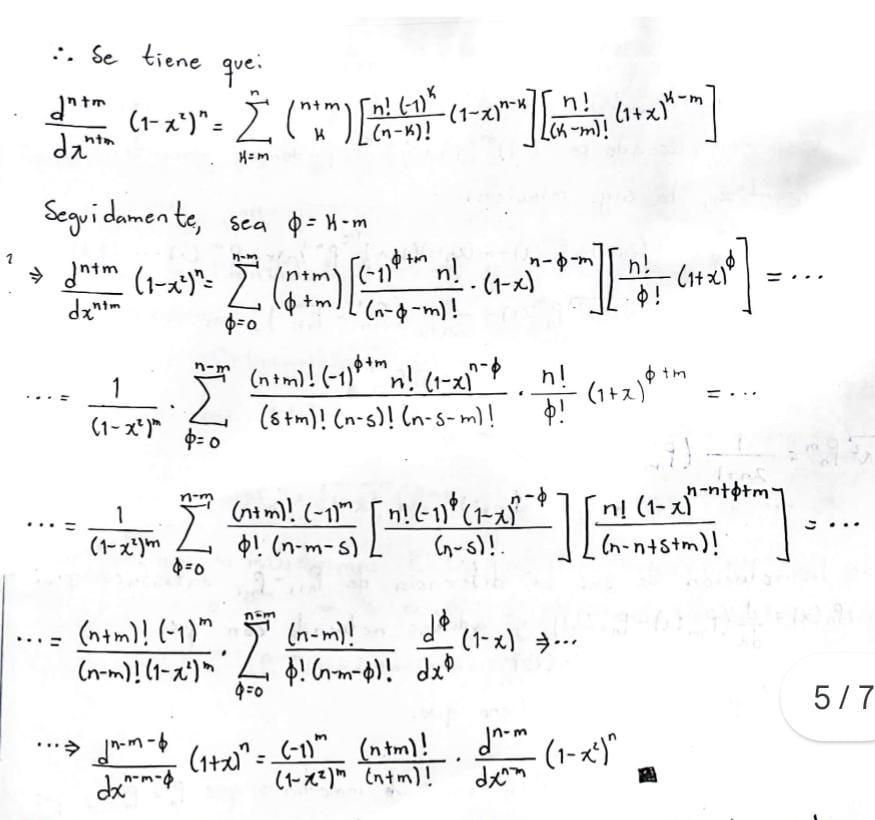 ∴ Se tiene que:
d^{n+m}/dx^{n+m} (1-x²)^n = Σ_{K=m}^{n} (n+m K) [n!(-1)^K/(n-K)! (1-x)^{n-K}] [n!/(K-m)! (1+x)^{K-m}]
Seguidamente, sea φ = K-m
⇒ d^{n+m}/dx^{n+m} (1-x²)^n = Σ_{φ=0}^{n-m} (n+m φ+m) [(-1)^{φ+m} n!/(n-φ-m)! · (1-x)^{n-φ-m}] [n!/φ! (1+x)^φ] = ...
... = 1/(1-x²)^m · Σ_{φ=0}^{n-m} (n+m)! (-1)^{φ+m} n! (1-x)^{n-φ}/(s+m)! (n-s)! (n-s-m)! · n!/φ! (1+x)^{φ+m} = ...
... = 1/(1-x²)^m Σ_{φ=0}^{n-m} (n+m)! (-1)^m/φ! (n-m-s) [n! (-1)^φ (1-x)^{n-φ}/(n-s)!.] [n! (1-x)^{n-n+φ+m}/(n-n+s+m)!] = ...
... = (n+m)! (-1)^m/(n-m)! (1-x²)^m · Σ_{φ=0}^{n-m} (n-m)!/φ! (n-m-φ)! d^φ/dx^φ (1-x) ⇒ ...
... ⇒ d^{n-m-φ}/dx^{n-m-φ} (1+x)^n = (-1)^m/(1-x²)^m (n+m)!/(n+m)! · d^{n-m}/dx^{n-m} (1-x²)^n ■
5 / 7